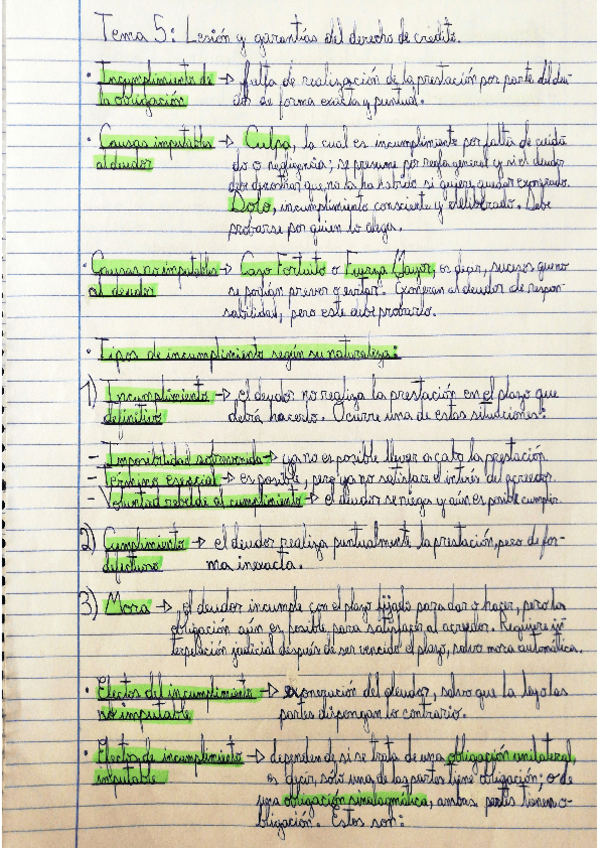 Tema 5: Lesión y garantías del derecho de crédito.
· Incumplimiento de → falta de realización de la prestación por parte del deu-
la obligación dor de forma exacta y puntual.
· Causas imputables → Culpa, la cual es incumplimiento por falta de cuida
al deudor do o negligencia; se presume por regla general y si el deudor
debe demostrar que no la ha habido si quiere quedar exonerado.
Dolo, incumplimiento consciente y deliberado. Debe
probarse por quien lo alega.
· Causas no imputables → Caso Fortuito o Fuerza Mayor, es decir, sucesos que no
al deudor se podían prever o evitar. Exoneran al deudor de respon-
sabilidad, pero este debe probarlo.
· Tipos de incumplimiento según su naturaleza:
1) Incumplimiento → el deudor no realiza la prestación en el plazo que
definitivo debía hacerlo. Ocurre una de estas situaciones:
- Imposibilidad sobrevenida → ya no es posible llevar a cabo la prestación.
- Término esencial → es posible, pero ya no satisface el interés del acreedor.
- Voluntad rebelde al cumplimiento → el deudor se niega y aún es posible cumplir.
2) Cumplimiento → el deudor realiza puntualmente la prestación, pero de for-
defectuoso ma inexacta.
3) Mora → el deudor incumple con el plazo fijado para dar o hacer, pero la
obligación aún es posible para satisfacer al acreedor. Requiere in
terpelación judicial después de ser vencido el plazo, salvo mora automática.
· Efectos del incumplimiento → exoneración del deudor, salvo que la ley o las
no imputable partes dispongan lo contrario.
· Efectos de incumplimiento → dependen de si se trata de una obligación unilateral,
imputable es decir, sólo una de las partes tiene obligación; o de
una obligación sinalagmática, ambas partes tienen o-
bligación. Estos son: